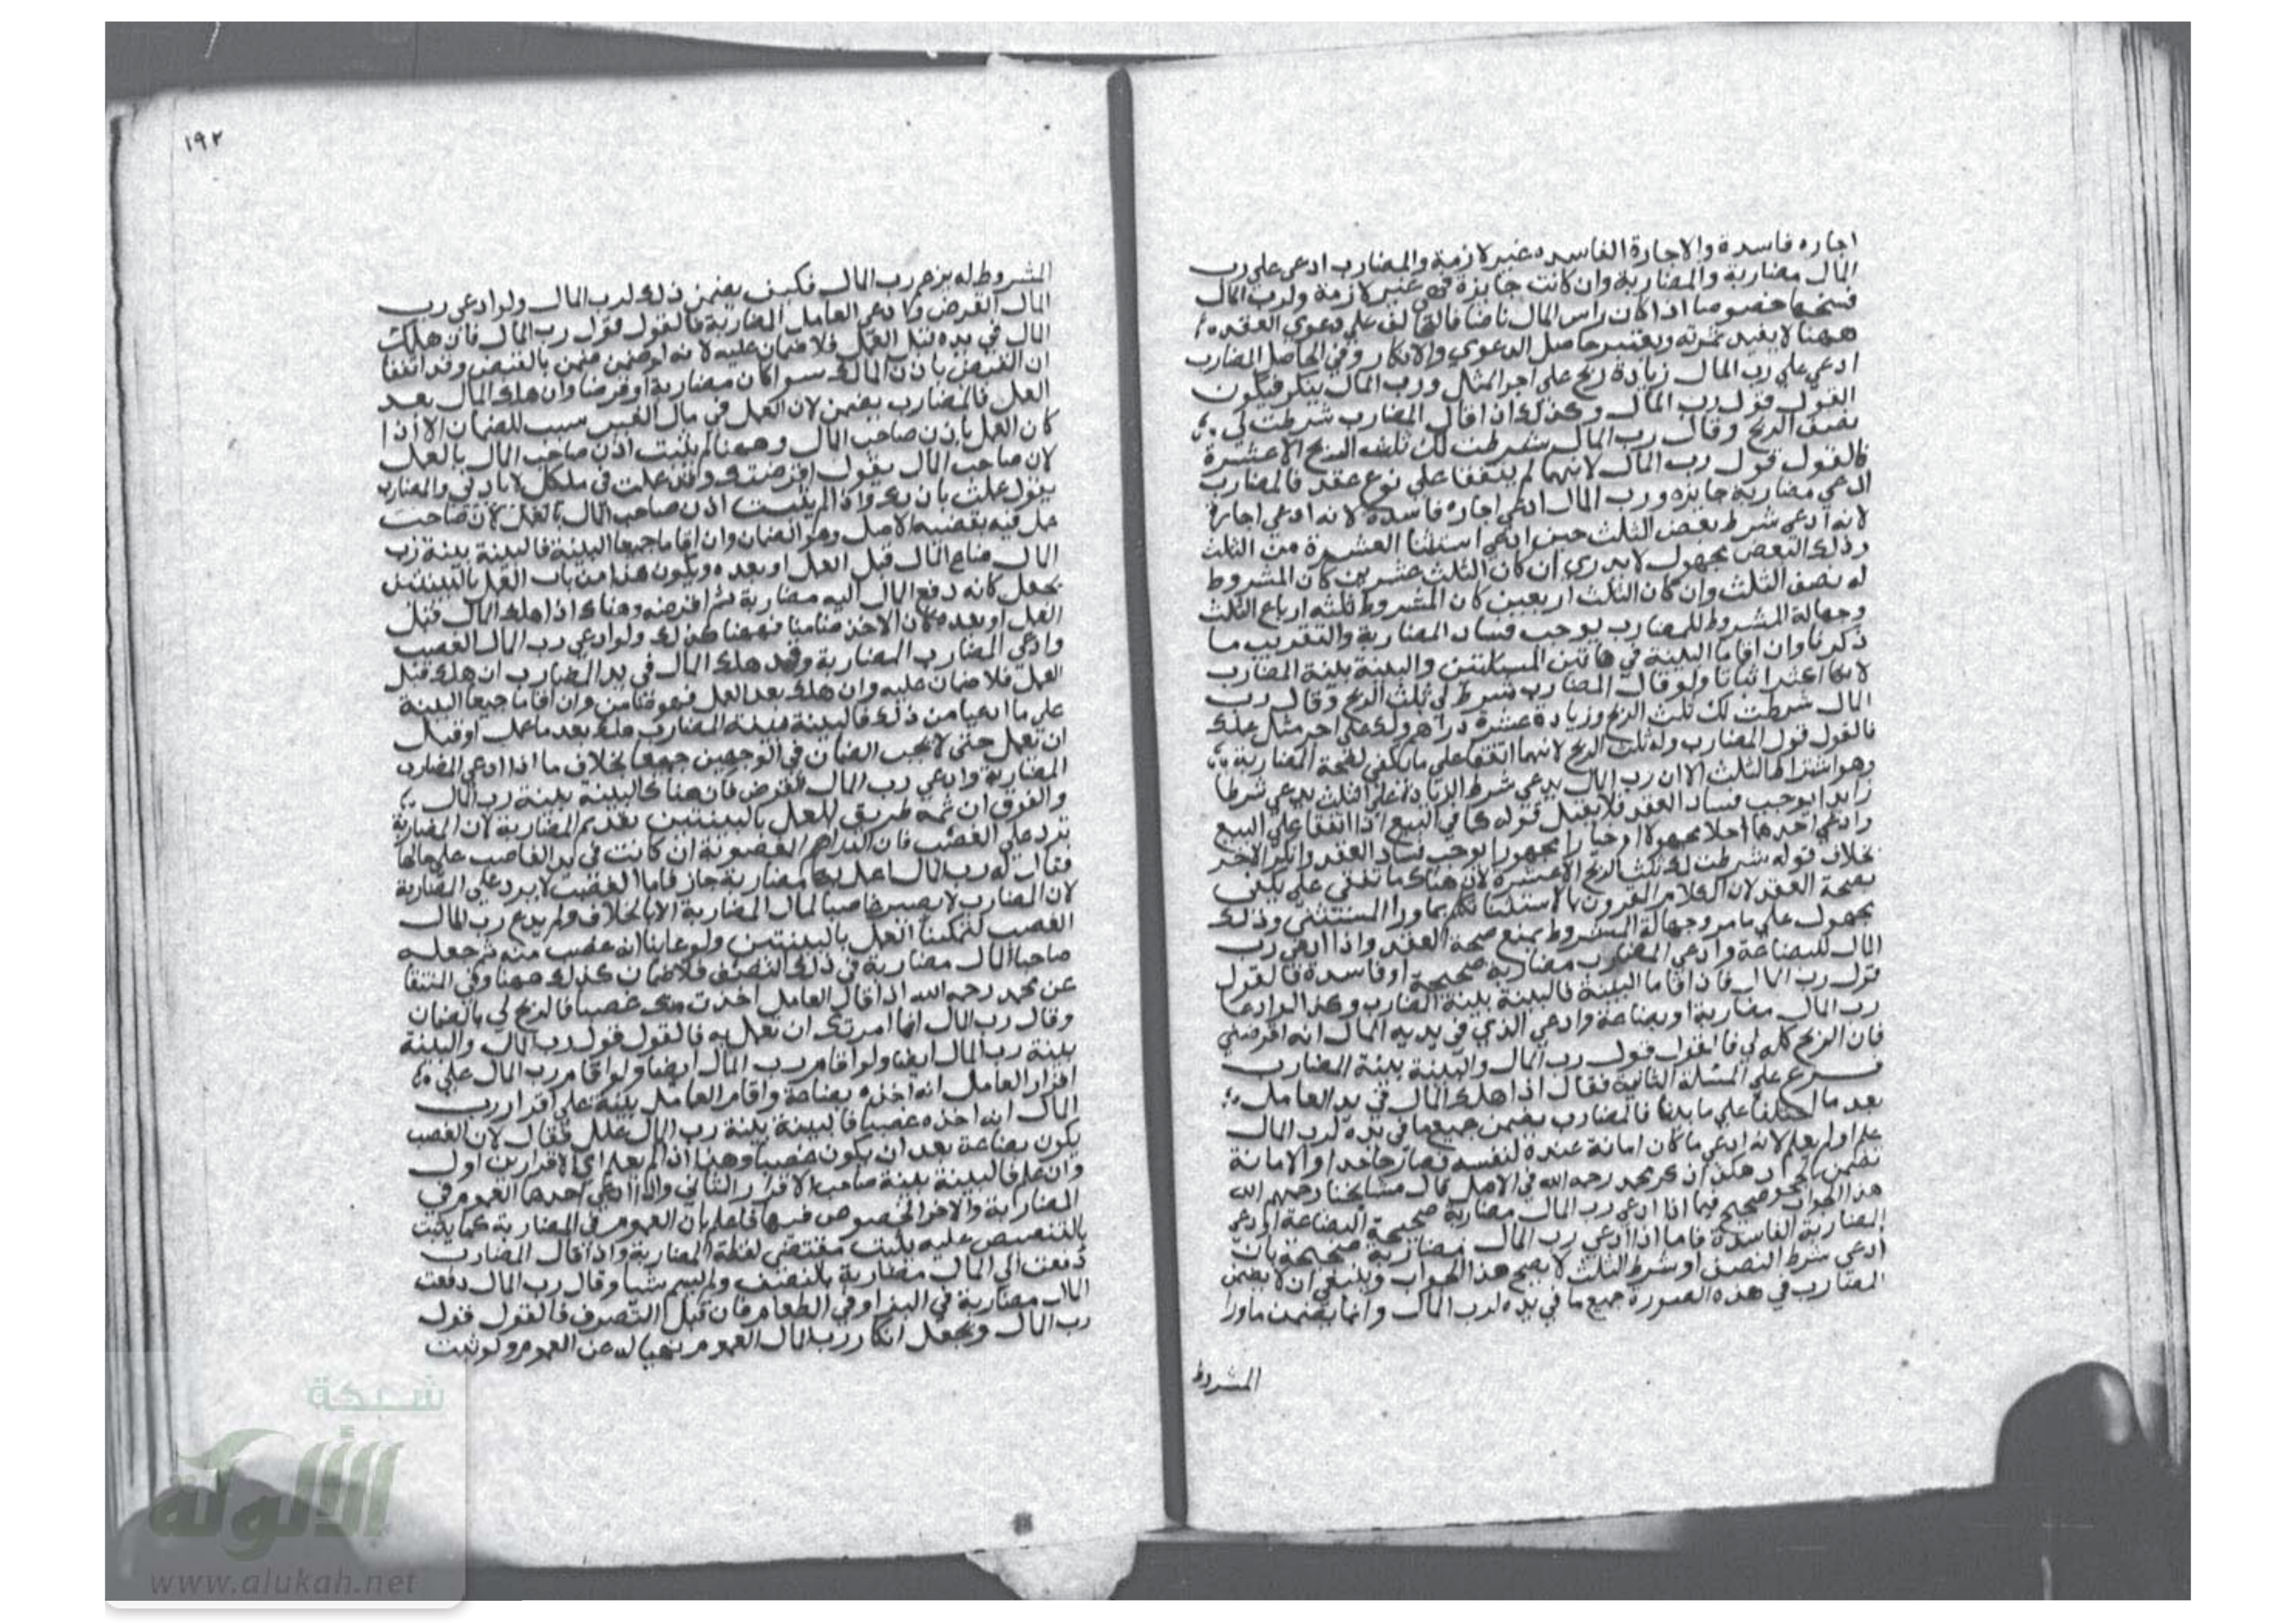 اجاره فاسدة والاجارة الفاسده غير لازمة والمضارب ادعى على رب
المال مضاربة والمضاربة وان كانت جايزة فهى غير لازمة ولرب المال
فسخها خصوصا اذا كان راس المال ناضا فالتحالف على دعوى العقد
ههنا لا يفيد ثمرته ويعتبر حاصل الدعوي والانكار وفي الحاصل المضارب
ادعي علي رب المال زيادة ربح علي اجر المثل ورب المال ينكر فيكون
القول قول رب المال وكذلك اذا قال المضارب شرطت لي
نصف الربح وقال رب المال شرطت لك ثلث الربح الا عشرة
فالقول قول رب المال لانهما لم يتفقا علي نوع عقد فالمضارب
ادعي مضاربة جايزه ورب المال ادعي اجاره فاسدة لانه ادعى اجارة
لانه ادعى شرط بعض الثلث حين ادعى استثنا العشرة من الثلث
وذلك البعض مجهول لا يدري ان كان الثلث عشرين كان المشروط
له نصف الثلث وان كان الثلث اربعين كان المشروط ثلثة ارباع الثلث
وجهالة المشروط للمضارب يوجب فساد المضاربة والتقريب ما
ذكرنا وان اقاما البينة في هاتين المسئلتين والبينة بينة المضارب
لانها اكثر اثباتا ولو قال المضارب شرط لي ثلث الربح وقال رب
المال شرطت لك ثلث الربح وزيادة عشرة دراهم ولك علي اجر مثل عملك
فالقول قول المضارب وله ثلث الربح لانهما اتفقا علي ما يكفي لصحة المضاربة
وهو اشتراط الثلث الا ان رب المال يدعي شرط الزيادة علي الثلث يدعي شرطا
زايدا يوجب فساد العقد فلا يقبل قوله كما في البيع اذا اتفقا علي البيع
وادعي احدهما اجلا مجهولا او خيارا مجهورا يوجب فساد العقد وانكر الاخر
بخلاف قوله شرطت لك ثلث الربح الا عشرة لان هناك ما
بصحة العقد لان الكلام المقرون بالاستثنا تكلم بما ورا المستثنى وذلك
مجهول علي ما مر وجهالة المشروط يمنع صحة العقد واذا ادعى رب
المال للبضاعة وادعى المضارب مضاربة صحيحة او فاسدة فالقول
قول رب المال فاذا اقاما البينة فالبينة بينة المضارب وكذا لو ادعا
رب المال مضاربة او بضاعة وادعي الذي في يديه المال انه اقرضني
فان الربح كله لي فالقول قول رب المال والبينة بينة المضارب
فرع علي المسئلة الثانية فقال اذا هلك المال في يد العامل
بعد ما اختلفا علي ما بينا فالمضارب يضمن جميع ما في يده لرب المال
عمل او لم يعمل لانه ادعي ما كان امانة عنده لنفسه فصار جاحدا والامانة
تضمن بالجحود هكذا ذكر محمد رحمه الله في الاصل قال مشايخنا رحمهم الله
هذا الجواب صحيح فيما اذا ادعى رب المال مضاربة صحيحة البضاعة او ادعى
المضاربة الفاسدة فاما اذا ادعى رب المال مضاربة صحيحة بان
ادعى شرط النصف او شرط الثلث لا يصح هذا الجواب وينبغي ان لا يضمن
المضارب في هذه الصورة جميع ما في يده لرب المال وانما يضمن ماورا
المشروط
١٩٢
المشروط له بزعم رب المال فكيف يضمن ذلك لرب المال ولو ادعى رب
المال القرض وادعى العامل المضاربة فالقول قول رب المال فان هلك
المال في يده قبل العمل فلا ضمان عليه لانه لو ضمن ضمن بالقبض وقد اتفقا
ان القبض باذن المالك سوا كان مضاربة او قرضا وان هلك المال بعد
العمل فالمضارب يضمن لان العمل في مال الغير سبب للضمان الا اذا
كان العمل باذن صاحب المال وههنا لم يثبت اذن صاحب المال بالعمل
لان صاحب المال يقول اقرضتك وقد عملت في ملكك لا باذني والمضارب
يقول عملت باذنك واذا لم يثبت اذن صاحب المال بالعمل
عمل فيه بقضية الاصل وهو الضمان وان اقاما جميعا البينة فالبينة بينة رب
المال ضاع المال قبل العمل او بعده ويكون هذا من باب العمل بالبينتين
يجعل كانه دفع المال اليه مضاربة ثم اقرضه وهناك اذا هلك المال قبل
العمل او بعده كان الاخذ ضامنا فههنا كذلك ولو ادعي رب المال الغصب
وادعى المضارب المضاربة وقد هلك المال في يد المضارب ان هلك قبل
العمل فلا ضمان عليه وان هلك بعد العمل فهو ضامن وان اقاما جميعا البينة
على ما ادعيا من ذلك فالبينة بينة المضارب هلك بعد ما عمل او قبل
ان تعمل حتى لا يجب الضمان في الوجهين جميعا بخلاف ما اذا ادعي المضارب
المضاربة وادعي رب المال القرض فان هناك البينة بينة رب المال
والفرق ان ثمه طريق للعمل بالبينتين بتقديم المضاربة لان المضاربة
ترد على الغصب فان الدراهم المغصوبة ان كانت في يد الغاصب علي حالها
فقال له رب المال اعمل بها مضاربة جاز فاما الغصب لا يرد علي المضاربة
لان المضارب لا يصير غاصبا لمال المضاربة الا بالخلاف ولم يدع رب المال
الغصب العمل بالبينتين ولو عاينا انه غصب منه ثم جعله
صاحب المال مضاربة في ذلك النصف فلا ضمان كذلك ههنا وفي المنتقا
عن محمد رحمه الله اذا قال العامل اخذت منك غصبا فالربح لي بالضمان
وقال رب المال انما امرتك ان تعمل به فالقول قول رب المال والبينة
بينة رب المال ايضا ولو اقام رب المال ايضا ولو اقام رب المال علي
اقرار العامل انه اخذه بضاعة واقام العامل بينة علي اقرار رب
المال انه اخذه غصبا فالبينة بينة رب المال علل فقال لان الغصب
يكون بضاعة بعد ان يكون غصبا وهذا اذا لم يعلم اي الاقرارين اول
وان علم فالبينة بينة صاحب الاقرار الثاني واذا ادعي احدهما العموم في
المضاربة والاخر الخصوص فيها فاعلم بان العموم في المضاربة كما يثبت
بالتنصيص عليه يثبت مقتضى لفظة المضاربة واذا قال المضارب
دفعت الي المال مضاربة بالنصف ولم يسم شيا وقال رب المال دفعت
المال مضاربة في البز او في الطعام فان قبل التصرف فالقول قول
رب المال ويجعل انكار رب المال العموم نهيا له عن العموم ولو ثبت
شبكة
الألوكة
www.alukah.net